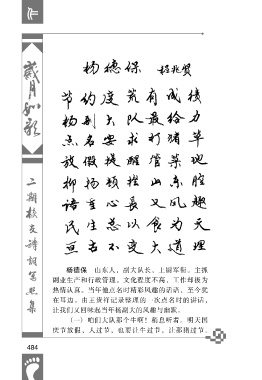 岁月如歌
二期校友诗词写照集
杨德保 杨兆贤
节约度荒有成绩
杨副大队最给力
点名安求打猪草
放假提醒管菜地
柳杨顿挫山东腔
语重心长又风趣
民生总以食为天
亘古不变大道理
杨德保 山东人，副大队长、上尉军衔。主抓
副业生产和行政管理。文化程度不高，工作却极为
热情认真。当年他点名时精彩风趣的话语，至今犹
在耳边。由王庚祥记录整理的一次点名时的讲话，
让我们又回味起当年杨副大的风趣与幽默。
（一）咱们大队那个牛啊！稍息听着。明天国
庆节放假，人过节，也要让牛过节，让那猪过节。
484